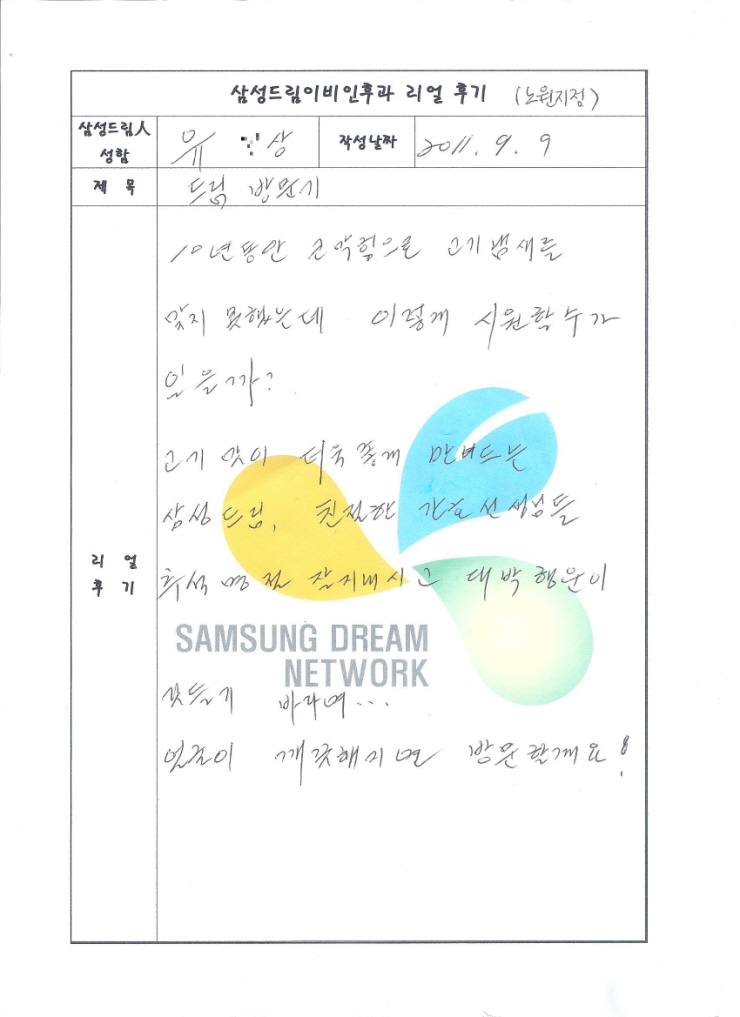 삼성드림이비인후과 리얼 후기 (노원지점)
삼성드림人 성함
유 상
작성날짜
2011. 9. 9
제 목
드림 방문기
리 얼 후 기
10년동안 코막힘으로 고기냄새를
맞지 못했는데 이렇게 시원할 수가
있을까?
고기 맛이 더욱 좋게 만드는
삼성드림, 친절한 간호선생님들
추석명절 잘지내시고 대박행운이
깃들기 바라며...
SAMSUNG DREAM
NETWORK
깨끗해지면 방문할게요!